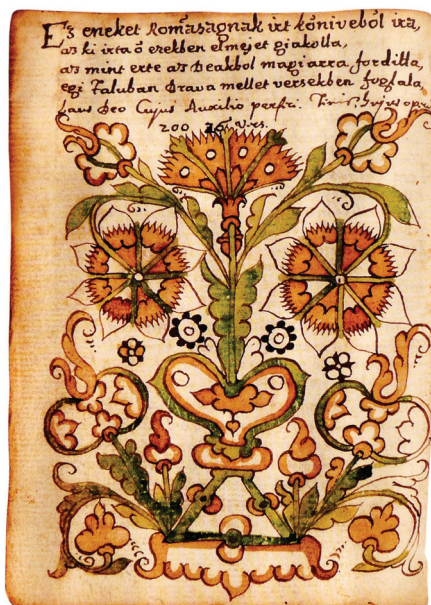 Ez eneket Romasagnak irt kőniveből ira,
az ki irta ő ezekben elmejet giakolla,
az mint erte az Deakbol magiarra fordilla,
egi Faluban Drava mellet versekben foglala
Laus Deo Cujus Auxilio perfeci. Finis hujus
200 Vers.